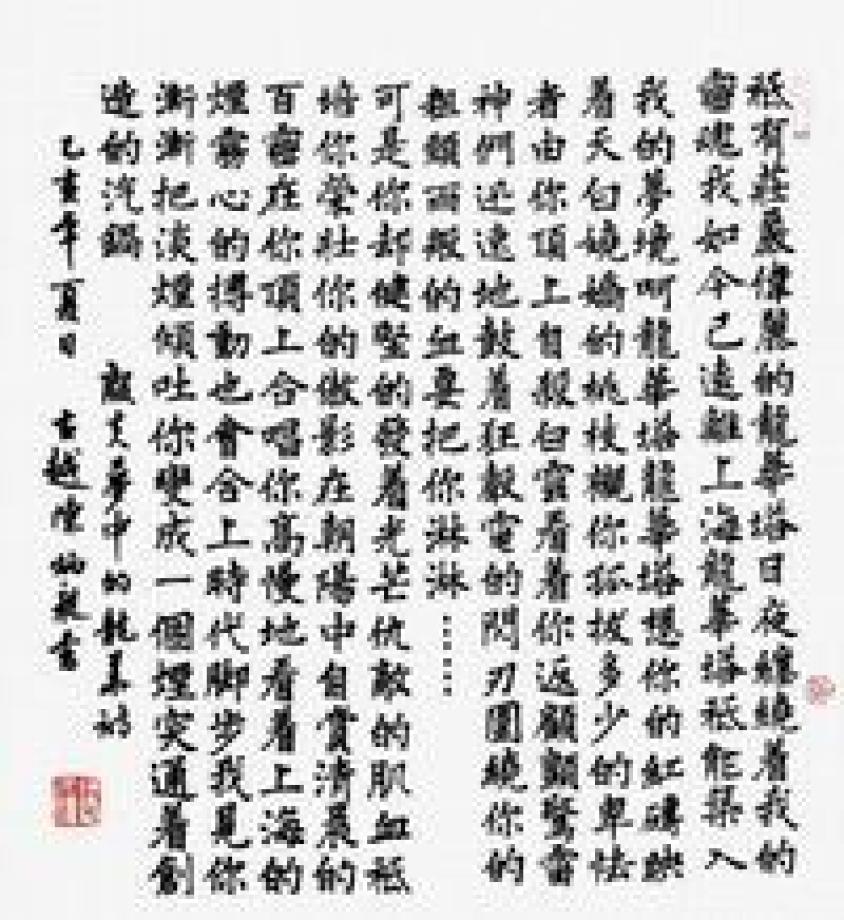 祗有莊嚴偉麗的龍華塔日夜纏繞着我的
靈魂我如今已遠離上海龍華塔祗能築入
我的夢境呵龍華塔龍華塔想你的紅磚映
着天白嬈嬌的桃枝襯你孤拔多少的卑怯
者由你頂上自殺白雲看着你返顧顫驚雷
神們迅速地鼓着狂轂電的閃刃圍繞你的
粗頸雨般的血要把你淋淋……
可是你却健堅的發着光芒仇敵的肌血祗
培你榮壯你的傲影在朝陽中自賞清晨的
百靈在你頂上合唱你高慢地看着上海的
煙霧心的搏動也會合上時代脚步我見你
漸漸把淡煙傾吐你變成一個煙突通着創
造的汽鍋 殷夫夢中的龍華詩
乙亥年夏日 古越陳書